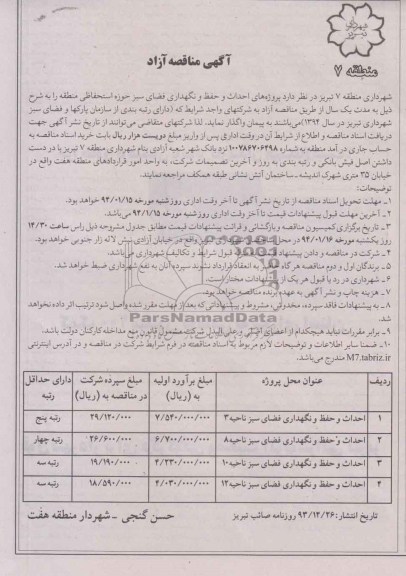 شهرداری تبریز
منطقه ۷
آگهی مناقصه آزاد
شهرداری منطقه ۷ تبریز در نظر دارد پروژه‌های احداث و حفظ و نگهداری فضای سبز حوزه استحفاظی منطقه را به شرح
ذیل به مدت یک سال از طریق مناقصه آزاد به شرکتهای واجد شرایط که (دارای رتبه بندی از سازمان پارکها و فضای سبز
شهرداری تبریز در سال ۱۳۹۴)می‌باشند به پیمان واگذار نماید. لذا شرکتهای متقاضی می‌توانند از تاریخ نشر آگهی جهت
دریافت اسناد مناقصه و اطلاع از شرایط آن در وقت اداری پس از واریز مبلغ دویست هزار ریال بابت خرید اسناد مناقصه به
حساب جاری در آمد منطقه به شماره ۱۰۰۷۸۶۷۰۶۴۹۸ نزد بانک شهر شعبه آزادی بنام شهرداری منطقه ۷ تبریز با در دست
داشتن اصل فیش بانکی و رتبه بندی به روز و آخرین تصمیمات شرکت، به واحد امور قراردادهای منطقه هفت واقع در
خیابان ۳۵ متری شهرک اندیشه ـ ساختمان آتش نشانی طبقه همکف مراجعه نمایند.
توضیحات:
۱ـ مهلت تحویل اسناد مناقصه از تاریخ نشر آگهی تا آخر وقت اداری روز شنبه مورخه ۹۴/۰۱/۱۵ خواهد بود.
۲ـ آخرین مهلت قبول پیشنهادات قیمت تا آخر وقت اداری روز شنبه مورخه ۹۴/۰۱/۱۵ می‌باشد.
۳ـ تاریخ برگزاری کمیسیون مناقصه و بازگشائی و قرائت پیشنهادات قیمت مطابق جدول مشروحه ذیل راس ساعت ۱۴/۳۰
روز یکشنبه مورخه ۹۴/۰۱/۱۶ در محل واقع در خیابان آزادی نبش لاله زار جنوبی خواهد بود.
۴ـ شرکت در مناقصه و دادن پیشنهاد قبول شرایط و تکالیف شهرداری می‌باشد.
۵ـ برندگان اول و دوم مناقصه هر گاه حاضر به انعقاد قرارداد نشوند سپرده آنان به نفع شهرداری ضبط خواهد شد.
۶ـ شهرداری در رد یا قبول هر یک از پیشنهادات مختار است.
۷ـ هزینه چاپ و نشر آگهی به عهده برنده مناقصه خواهد بود.
۸ـ به پیشنهادات فاقد سپرده، مخدوش، مشروط و پیشنهاداتی که بعد از مهلت مقرر شده واصل شود ترتیب اثر داده نخواهد
شد.
۹ـ برابر مقررات نباید هیچکدام از اعضای اصلی و علی البدل شرکت مشمول قانون منع مداخله کارکنان دولت باشد.
۱۰ـ ضمنا سایر اطلاعات و توضیحات لازم مربوط به اسناد مناقصه در فرم شرایط شرکت در مناقصه و در آدرس اینترنتی
M7.tabriz.ir مندرج می‌باشد.
ParsNamadData
ردیف | عنوان محل پروژه | مبلغ برآورد اولیه به (ریال) | مبلغ سپرده شرکت در مناقصه به (ریال) | دارای حداقل رتبه
۱ | احداث و حفظ و نگهداری فضای سبز ناحیه۳ | ۷/۵۴۰/۰۰۰/۰۰۰ | ۲۹/۱۲۰/۰۰۰ | رتبه پنج
۲ | احداث و حفظ و نگهداری فضای سبز ناحیه۸ | ۶/۷۰۰/۰۰۰/۰۰۰ | ۲۶/۶۰۰/۰۰۰ | رتبه چهار
۳ | احداث و حفظ و نگهداری فضای سبز ناحیه۱۰ | ۴/۲۳۰/۰۰۰/۰۰۰ | ۱۹/۱۹۰/۰۰۰ | رتبه سه
۴ | احداث و حفظ و نگهداری فضای سبز ناحیه۱۲ | ۴/۰۳۰/۰۰۰/۰۰۰ | ۱۸/۵۹۰/۰۰۰ | رتبه سه
تاریخ انتشار: ۹۳/۱۲/۲۶ روزنامه صائب تبریز
حسن گنجی ـ شهردار منطقه هفت